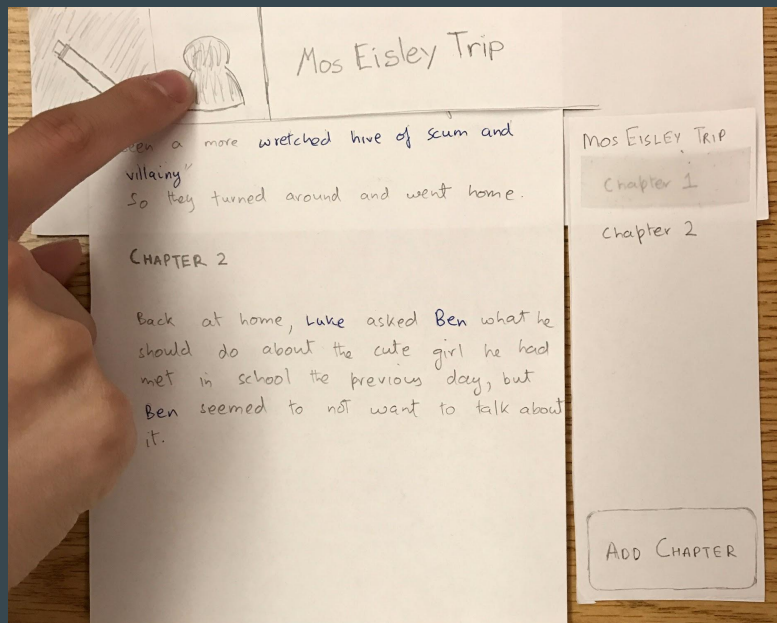 Mos Eisley Trip
a more wretched hive of scum and
villainy"
So they turned around and went home.
CHAPTER 2
Back at home, Luke asked Ben what he
should do about the cute girl he had
met in school the previous day, but
Ben seemed to not want to talk about
it.
MOS EISLEY TRIP
Chapter 1
Chapter 2
ADD CHAPTER